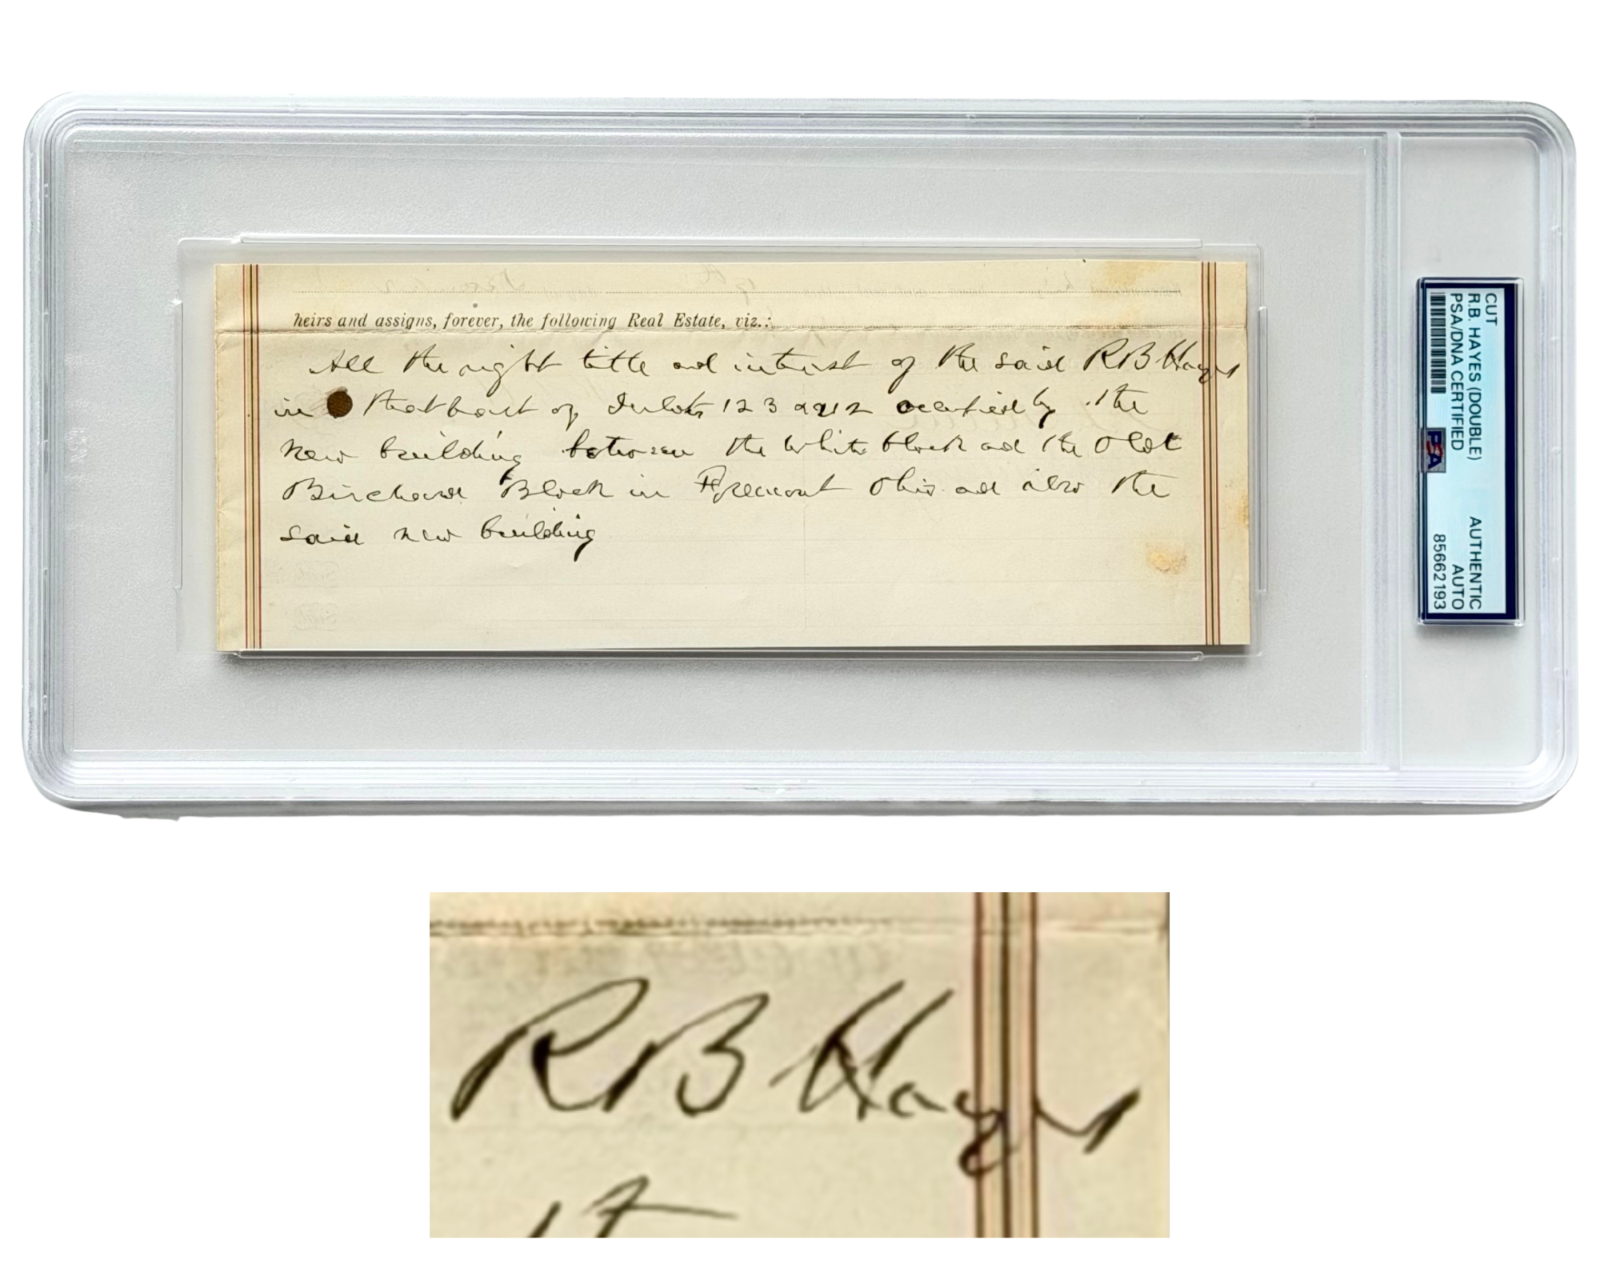 heirs and assigns, forever, the following Real Estate, viz.:
All the right title and interest of the said R B Hayes
in that part of Inlots 1 2 3 and 12 occupied by the
new building between the White block and the Old
Birchard Block in Fremont Ohio and also the
said new building
CUT
R.B. HAYES (DOUBLE)
PSA/DNA CERTIFIED
PSA
AUTHENTIC
AUTO
85662193
R B Hayes